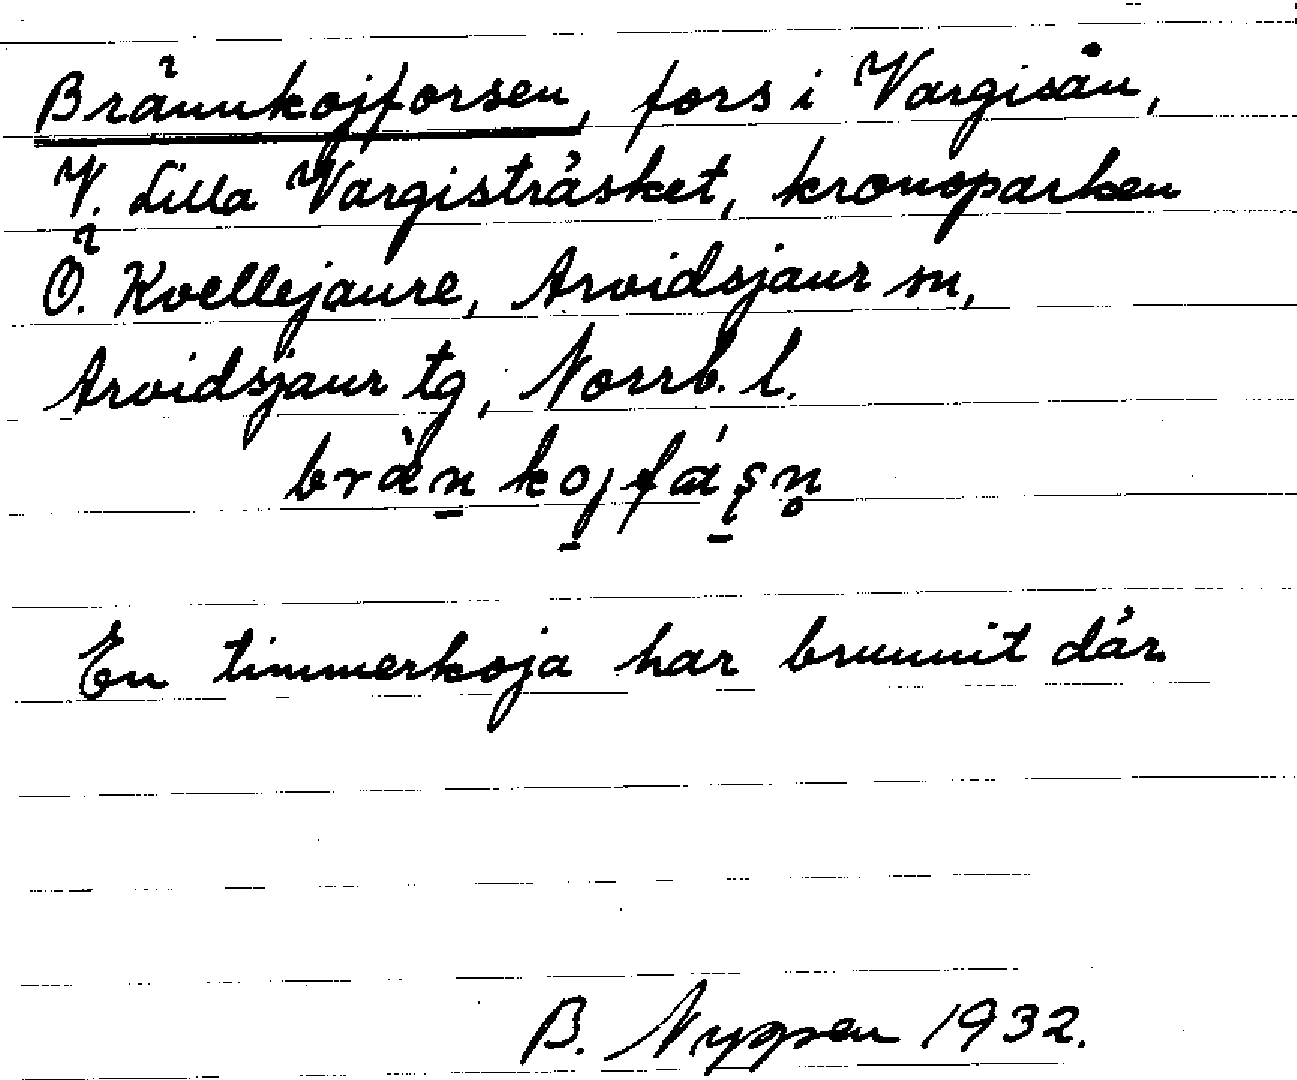 Brännkojforsen, fors i Vargisån,
V. Lilla Vargisträsket, kronoparken
Ö. Kvellejaure, Arvidsjaur sn,
Arvidsjaur tg, Norrb. l.
En timmerkoja har brunnit där.
B. Nyppen 1932.